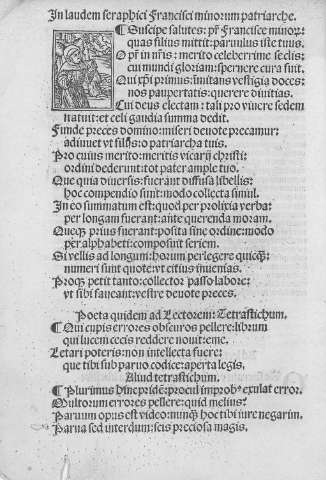 In laudem seraphici Francisci minorum patriarche.
¶ Suscipe salutes: pr̄ Francisce minoꝝ:
quas filius mittit: paruulus iste tuus.
O pr̄ in nr̄is: merito celeberrime seclis:
cui mundi gloriam: spernere cura fuit.
Qui xp̄i primus: imitans vestigia doces:
nos paupertatis: querere diuitias.
Cui deus electam: tali pro viuere sedem
statuit: et celi gaudia summa dedit.
Funde preces domino: miseri deuote precamur:
adiuuet vt filios: o patriarcha tuis.
Pro cuius merito: meritis vicarij christi:
ordini dederunt: tot pater ample tuo.
Que quia diuersis: fuerant diffusa libellis:
hoc compendio sunt: modo collecta simul.
In eo summatim est: quod per prolixa verba:
per longam fuerant: ante querenda moram.
Queqꝫ prius fuerant: posita sine ordine: modo
per alphabeti: composuit seriem.
Si vellis ad longum: horum perlegere quicqꝫ:
numeri sunt quote: vt citius inuenias.
Proqꝫ petit tanto: collector passo labore:
vt sibi faueant: vestre deuote preces.
Poeta quidem ad Lectorem: Tetrastichum.
¶ Qui cupis errores obscuros pellere: librum
qui lucem cecis reddere nouit: eme.
Letari poteris: non intellecta fuere:
que tibi sub paruo codice: aperta legis.
Aliud tetrastichum.
¶ Plurimus hinc pridem: procul improbꝰ exulat error.
Multorum errores pellere: quid melius?
Paruum opus est video: nunqꝫ hoc tibi iure negarim.
Parua sed interdum: scis preciosa magis.